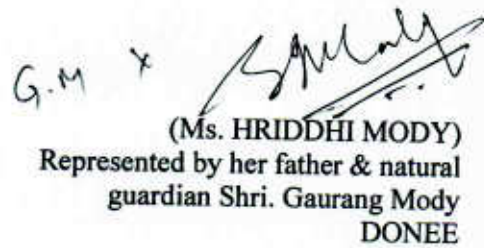 G.M x
(Ms. HRIDDHI MODY)
Represented by her father & natural
guardian Shri. Gaurang Mody
DONEE